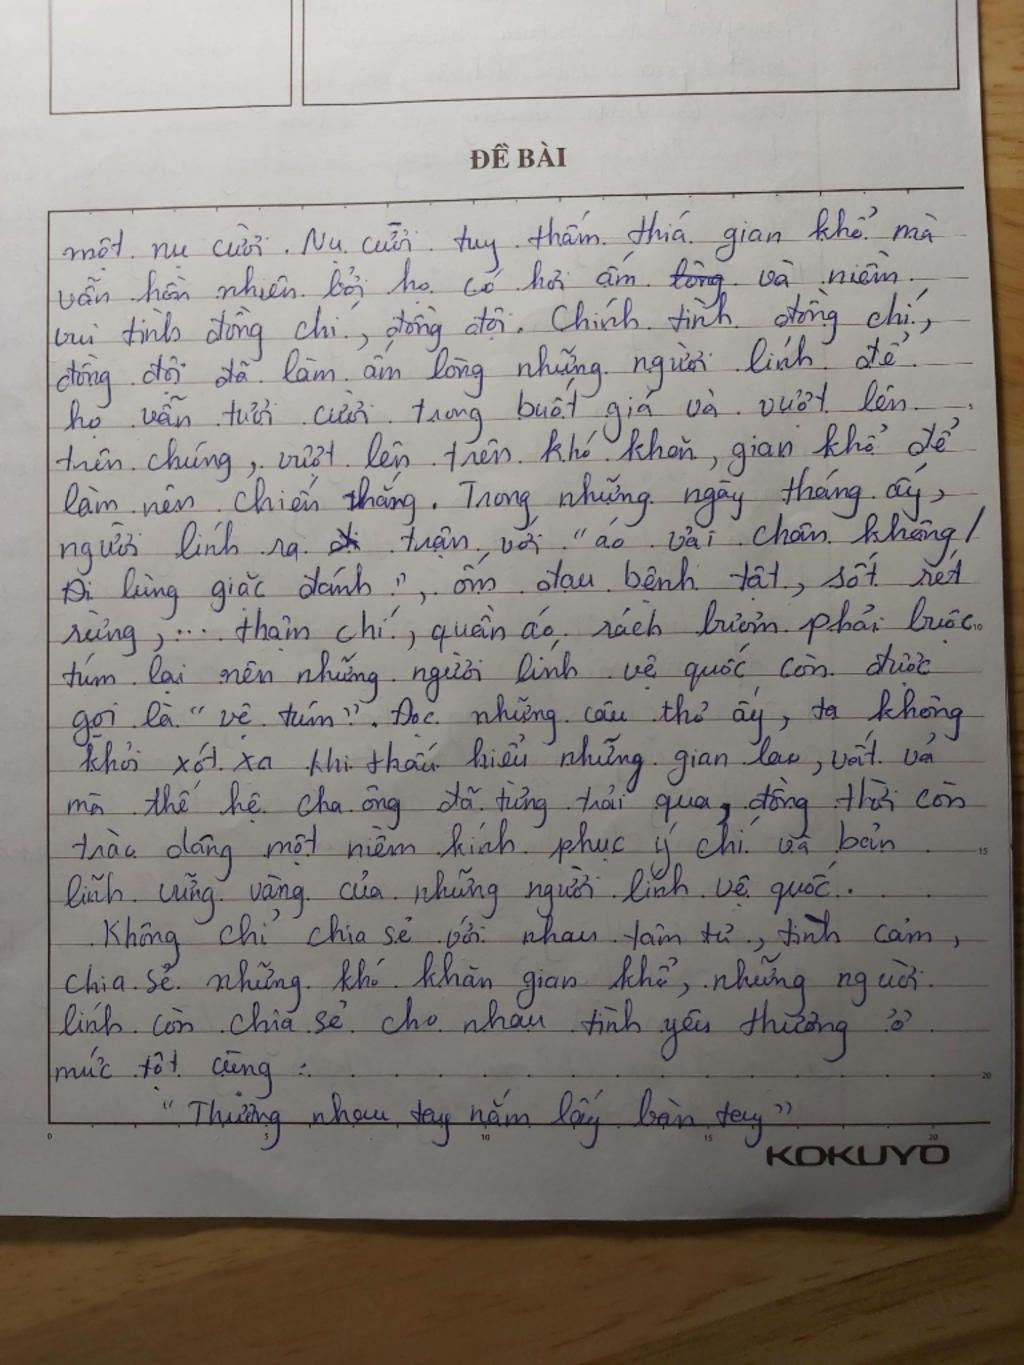 ĐỀ BÀI
một nụ cười. Nụ cười tuy thấm thiá gian khổ mà
vẫn hồn nhiên bởi họ có hơi ấm và niềm
vui tình đồng chí, đồng đội. Chính tình đồng chí,
đồng đội đã làm ấm lòng những người lính để
họ vẫn tươi cười trong buốt giá và vượt lên
trên chúng, vượt lên trên khó khăn, gian khổ để
làm nên chiến thắng. Trong những ngày tháng ấy,
người lính ra trận với "áo vải chân không/
Đi lùng giặc đánh", ốm đau bệnh tật, sốt rét
rừng,... thậm chí, quần áo rách bươm phải buộc
túm lại nên những người lính vệ quốc còn được
gọi là "vệ túm". Đọc những câu thơ ấy, ta không
khỏi xót xa khi thấu hiểu những gian lao, vất vả
mà thế hệ cha ông đã từng trải qua, đồng thời còn
trào dâng một niềm kính phục ý chí và bản
lĩnh vững vàng của những người lính vệ quốc.
Không chỉ chia sẻ với nhau tâm tư, tình cảm,
chia sẻ những khó khăn gian khổ, những người
lính còn chia sẻ cho nhau tình yêu thương ở
mức tột cùng:
"Thương nhau tay nắm lấy bàn tay"
0 5 10 15 20
10
15
20
KOKUYO